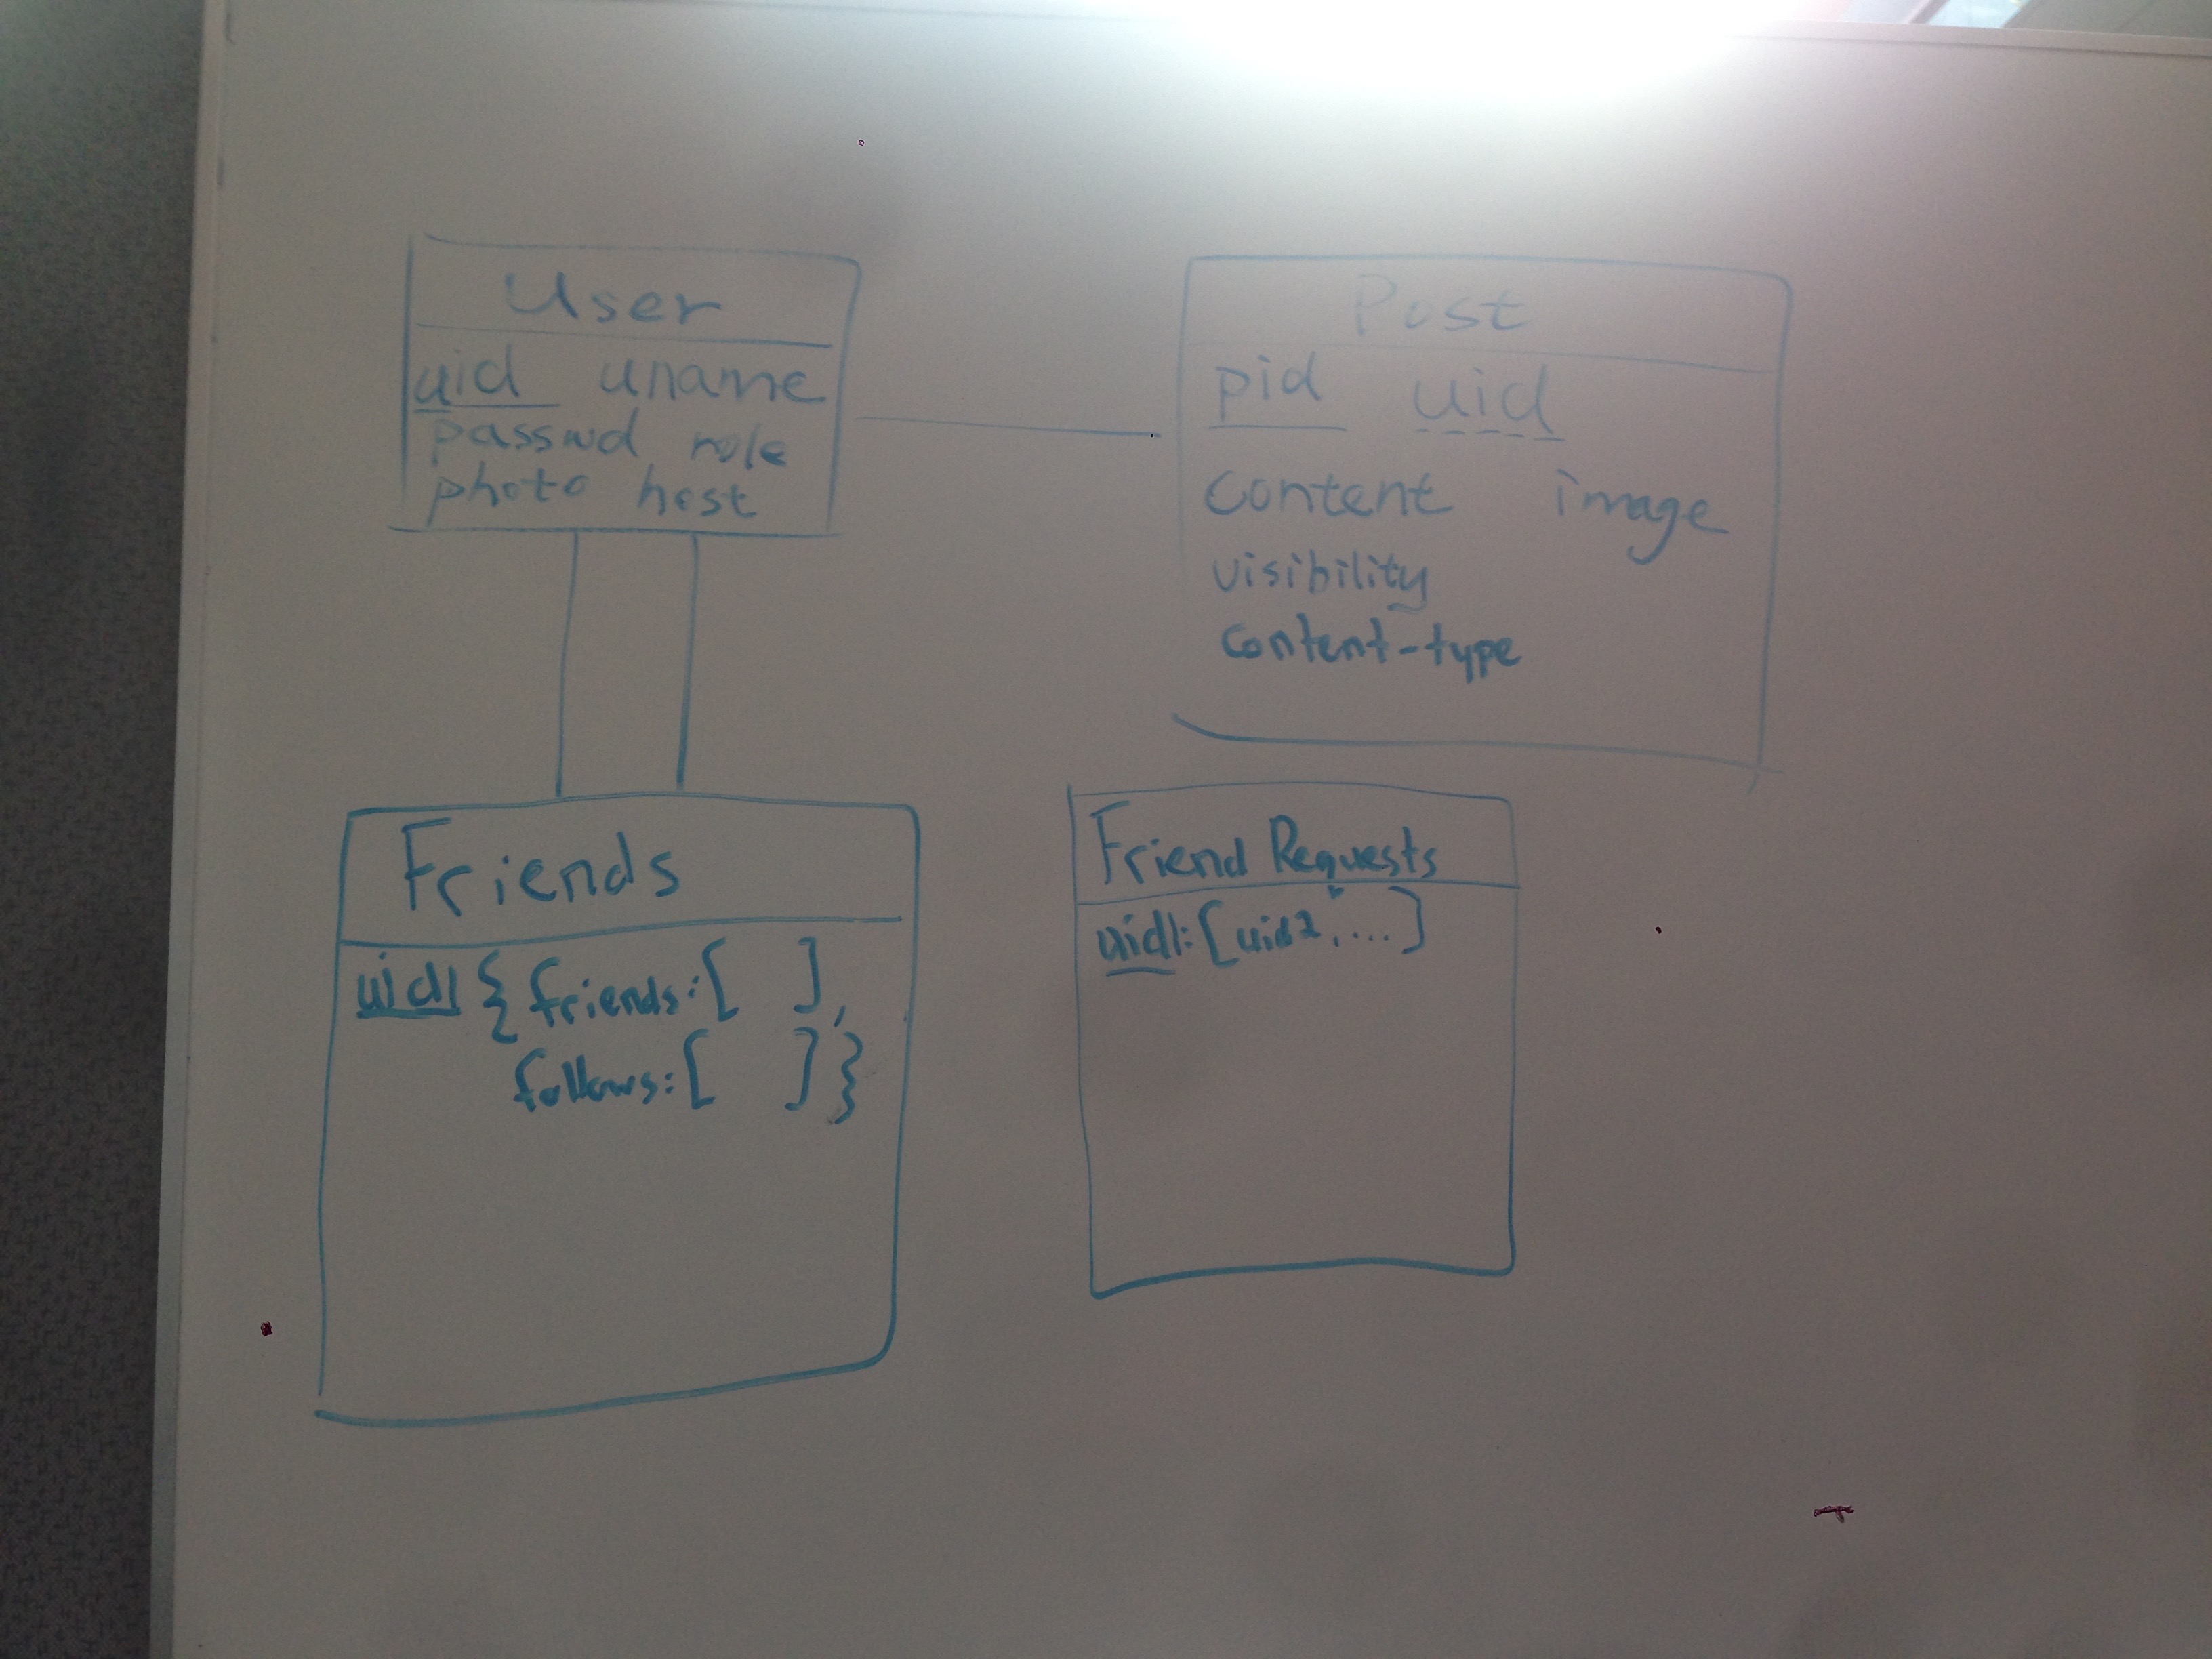 User
uid uname
passwd role
photo host
Post
pid uid
content image
visibility
content-type
Friends
uid1 { friends: [ ],
follows: [ ] }
Friend Requests
uid1: [uid2, ...]